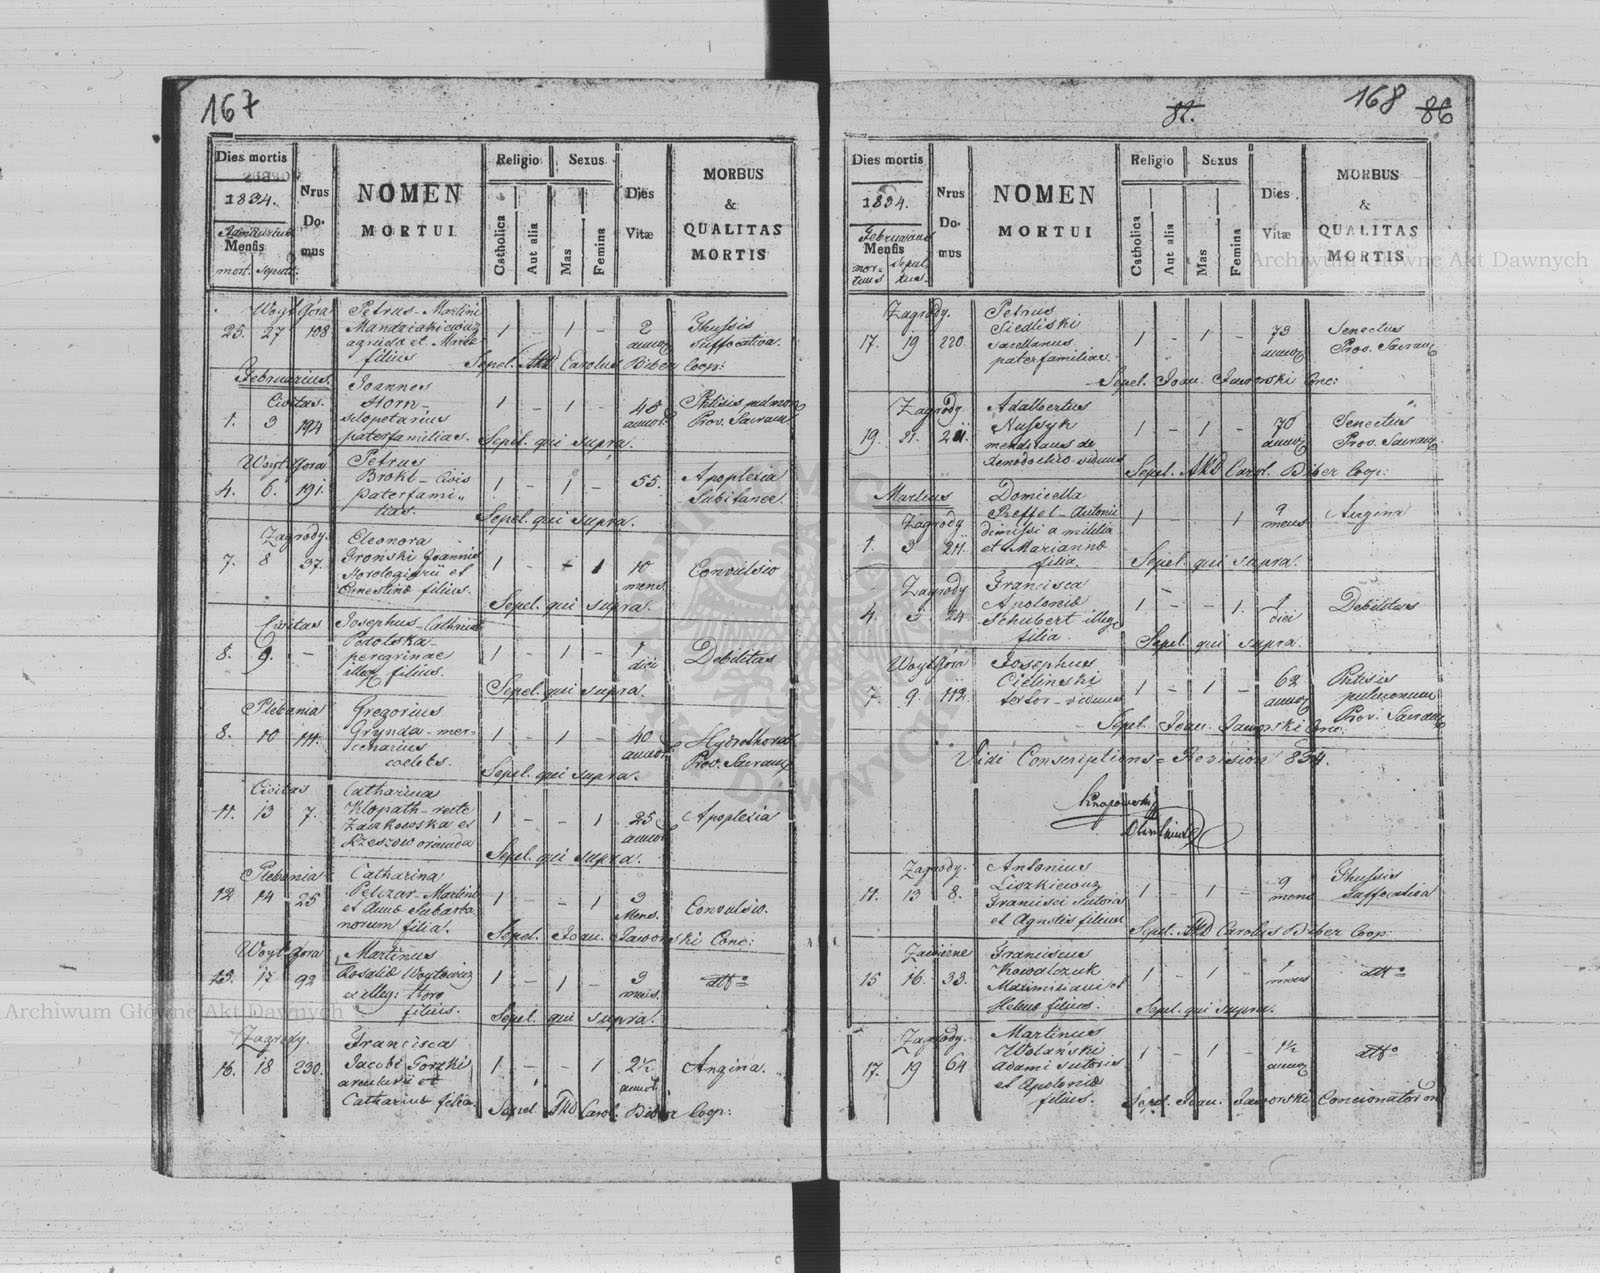 167
Dies mortis
1834.
Januarius
Mensis
mort. Sepult.
Nrus
Do-
mus
NOMEN
MORTUI
Religio
Catholica
Aut alia
Sexus
Mas
Femina
Dies
Vitæ
MORBUS
&
QUALITAS
MORTIS
Woyt Góra
25. 27 108
Petrus - Martini
agricolæ et Mariæ
filius
1 - 1 -
2
annor
Thussis
suffocativa.
Sepel. Carolus Biber Coop:
Februarius.
Civitas.
1. 3 194
Joannes
Horn -
sclopetarius
paterfamilias.
1 - 1 -
Phtisis pulmon
Prov. Sacram
Sepel. qui supra.
Woyt Góra
4. 6. 191.
Petrus
Brohl - Civis
paterfami-
lias.
1 - 1 -
55.
Apoplexia
Subitanea.
Sepel. qui supra.
Zagrody.
7. 8 37.
Eleonora
Gronski Joannis
Horologiarii et
Ernestinæ filius.
1 - 1
10
mens.
Convulsio
Sepel. qui supra.
Civitas
8. 9. -
Josephus - Catharinæ
peregrinae
filius.
1 - 1 -
1
diei
Debilitas
Sepel. qui supra.
Plebania
8. 10 111.
Gregorius
Grynda - mer-
cenarius
coelebs.
1 - 1 -
40
annor.
Hydrothorax
Prov. Sacram
Sepel. qui supra.
Civitas
11. 13 7.
Catharina
Klopath - recte
Zaczkowska ex
Rzeszow oriunda
1 - - 1
25
annor
Apoplexia
Sepel. qui supra.
Plebania
12 14 25
Catharina
Pelczar - Martini
et Annæ Subarba-
norum filia.
1 - - 1
3
Mens.
Convulsio.
Sepel. Joan. Jaworski Conc:
Woyt Góra
15. 17 92
Martinus
Rosaliæ Woytowicz
ex illeg: thoro
filius.
1 - 1 -
3
mens.
dtto
Sepel. qui supra.
Zagrody.
16. 18 230.
Francisca
Jacobi Gorzki
arcularii et
Catharinæ filia.
1 - - 1
2½
annor.
Angina.
Sepel. Carol. Biber Coop:
82.
168
86
Dies mortis
1834.
Februarius
Mensis
mor-
tuus
sepul-
tus.
Nrus
Do-
mus
NOMEN
MORTUI
Religio
Catholica
Aut alia
Sexus
Mas
Femina
Dies
Vitæ
MORBUS
&
QUALITAS
MORTIS
Zagrody.
17. 19 220
Petrus
Siedliski
sacellanus
paterfamilias.
1 - 1 -
73
annor
Senectus
Prov. Sacram
Sepel. Joan. Jaworski Conc:
Zagrody.
19. 21.
Adalbertus
mendicans de
Xenodochio viduus
1 - 1 -
70
annor
Senectus
Prov. Sacram
Sepel. Carol. Biber Coop:
Martius
Zagrody
1. 3 211.
Domicella
Reffel - Antonii
dimissi a militia
et Mariannæ
filia.
1 1
9
mens
Angina
Sepel. qui supra.
Zagrody
4. 5. 24
Francisca
Apoloniæ
Schubert illeg
filia
1 - - 1.
1
diei
Debilitas
Sepel. qui supra.
Woyt Góra
7. 9. 112.
Josephus
Cielinski
textor - viduus
1 - 1 -
62
annor
Phtisis
pulmonum
Prov. Sacram
Sepel. Joan. Jaworski Conc:
Vidi Conscriptions - Revision 834.
Zagrody.
11. 13 8.
Antonius
Liszkiewicz
Francisci sutoris
et Agnetis filius
1 - 1 -
9
mens
Thussis
suffocativa
Sepel. Carolus Biber Coop:
15 16. 33.
Franciscus
Kowalczuk
Maximiliani et
Helenæ filius.
1 - 1 -
1
mens
dtto
Sepel. qui supra.
Zagrody.
17. 19 64
Martinus
Wolański
Adami sutoris
et Apoloniæ
filius.
1 - 1 -
1½
annor
dtto
Sepel. Joan. Jaworski Concionator
Archiwum Główne Akt Dawnych
Archiwum Główne Akt Dawnych